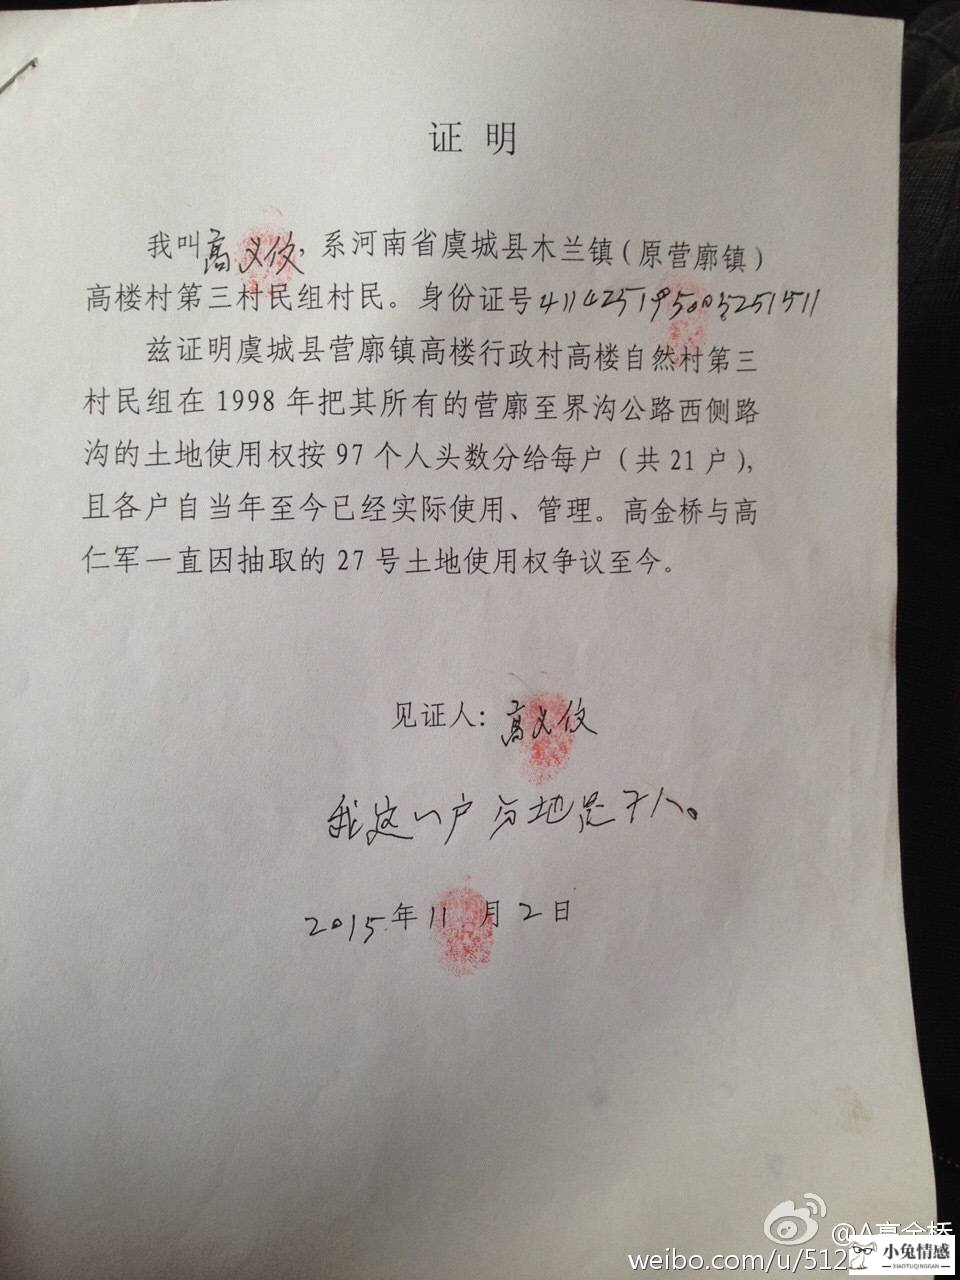 证 明
我叫高义俊，系河南省虞城县木兰镇（原营廓镇）
高楼村第三村民组村民。身份证号
兹证明虞城县营廓镇高楼行政村高楼自然村第三
村民组在 1998 年把其所有的营廓至界沟公路西侧路
沟的土地使用权按 97 个人头数分给每户（共 21 户），
且各户自当年至今已经实际使用、管理。高金桥与高
仁军一直因抽取的 27 号土地使用权争议至今。
见证人：高义俊
我这一户分地是7人。
2015年11月2日
@A高金桥
weibo.com/u/512
小兔情感
XIAOTUQINGGAN